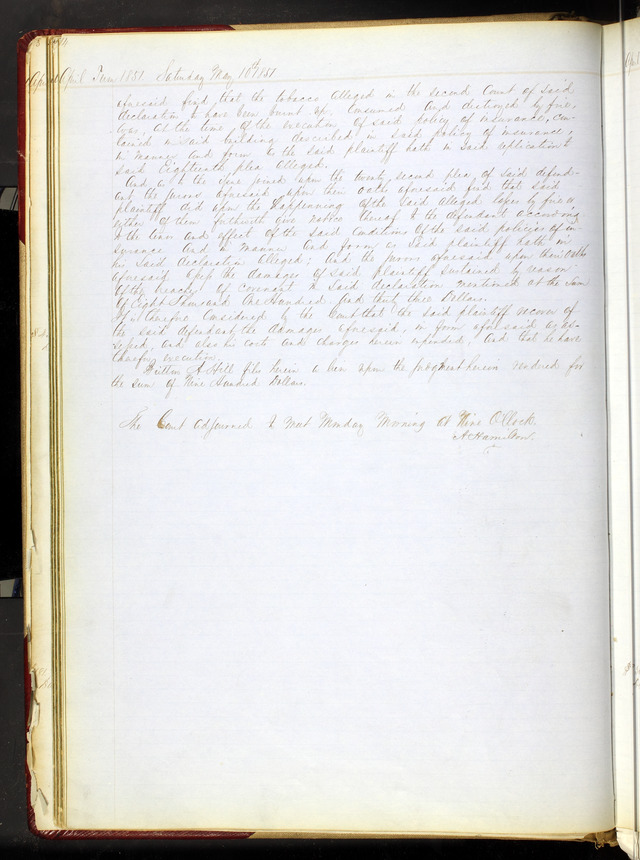 April Term 1851. Saturday May 10th 1851
aforesaid find that the tobacco alleged in the second Count of said
declaration to have been burnt up, Consumed and destroyed by fire,
was, at the time of the execution of said policy of insurance, con-
tained in said building described in said policy of insurance,
in manner and form as the said plaintiff hath in said replication to
said Eighteenth plea alleged.
And as to the issue joined upon the twenty second plea, of said defend-
ant the jurors aforesaid upon their oaths aforesaid find that said
plaintiff did upon the happening of the said alleged losses by fire or
either of them forthwith give notice thereof to the defendant according
to the tenor and effect of the said Conditions of the said policies of in-
surance and in manner and form as said plaintiff hath in
his said declaration alleged; And the jurors aforesaid upon their oaths
aforesaid assess the damages of said plaintiff sustained by reason
of the breaches of Covenant in said declaration mentioned at the Sum
of Eight Thousand One Hundred and thirty three Dollars.
It is therefore Considered by the Court that the said plaintiff recover of
the said defendant the damages aforesaid, in form aforesaid as as-
sessed, and also his costs and charges herein expended, And that he have
therefor execution.
Britton A Hill files herein a lien upon the judgment herein rendered for
the sum of Nine Hundred Dollars.
The Court adjourned to meet Monday Morning at Nine O'Clock.
A Hamilton